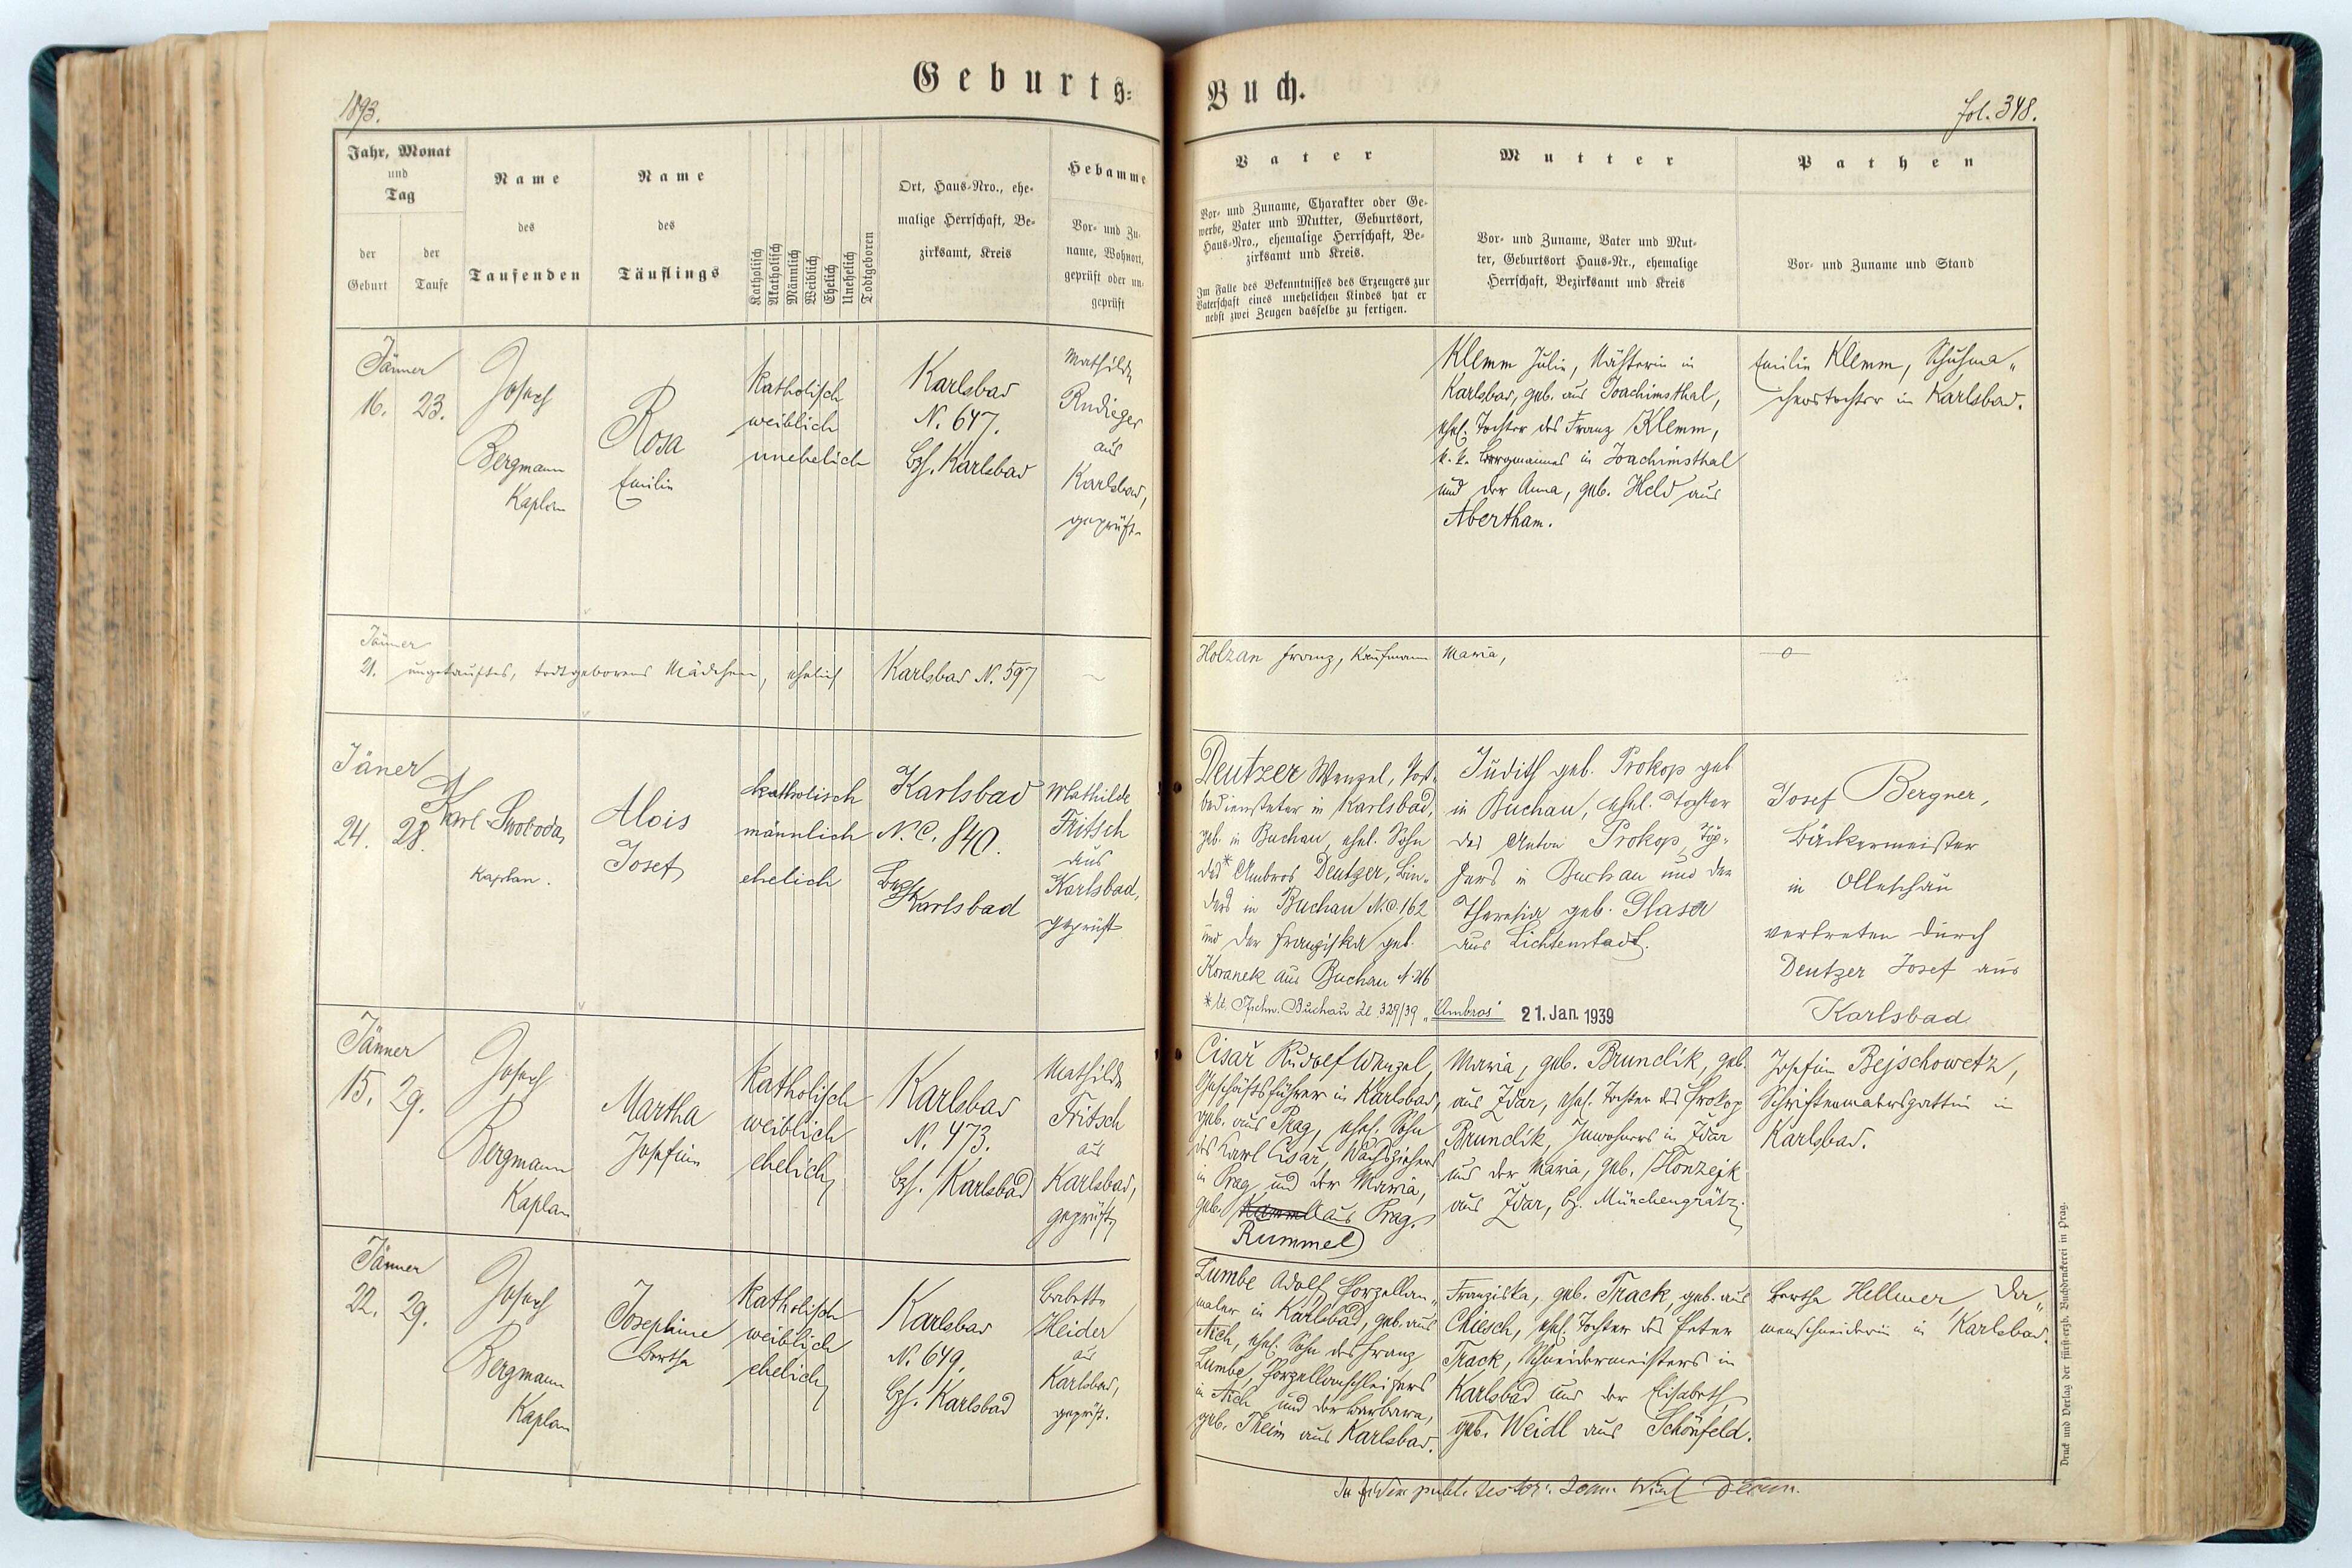 1893.
Geburts-
Buch.
fol. 348.
Jahr, Monat
und
Tag
der
Geburt
der
Taufe
Name
des
Taufenden
Name
des
Täuflings
Katholisch
Akatholisch
Männlich
Weiblich
Ehelich
Unehelich
Todtgeboren
Ort, Haus-Nro., ehe-
malige Herrschaft, Be-
zirksamt, Kreis
Hebamme
Vor- und Zu-
name, Wohnort,
geprüft oder un-
geprüft
Vater
Vor- und Zuname, Charakter oder Ge-
werbe, Vater und Mutter, Geburtsort,
Haus-Nro., ehemalige Herrschaft, Be-
zirksamt und Kreis.
Im Falle des Bekenntnisses des Erzeugers zur
Vaterschaft eines unehelichen Kindes hat er
nebst zwei Zeugen dasselbe zu fertigen.
Mutter
Vor- und Zuname, Vater und Mut-
ter, Geburtsort Haus-Nr., ehemalige
Herrschaft, Bezirksamt und Kreis
Pathen
Vor- und Zuname und Stand
Jänner
16. 23.
Josef
Bergmann
Kaplan
Rosa
Emilie
katholisch
weiblich
unehelich
Karlsbad
N. 647.
Bzh. Karlsbad
Mathilde
Rudieger
aus
Karlsbad,
geprüft.
Klemm Julie, Nähterin in
Karlsbad, geb. aus Joachimsthal,
ehel. Tochter des Franz Klemm,
k. k. Bergmannes in Joachimsthal
und der Anna, geb. Held aus
Abertham.
Emilie Klemm, Schuhma-
cherstochter in Karlsbad.
Jänner
21. ungetauftes, todtgeborenes Mädchen, ehelich
Karlsbad N. 597
Holzan Franz, Kaufmann
Maria,
Jäner
24. 28.
Karl Swoboda,
Kaplan.
Alois
Josef
katholisch
männlich
ehelich
Karlsbad
N. C. 840.
Bezh.
Karlsbad
Mathilde
Fritsch
aus
Karlsbad,
geprüft
Deutzer Wenzel, Post-
bediensteter in Karlsbad,
geb. in Buchau, ehel. Sohn
des* Ambros Deutzer, Bin-
ders in Buchau N.C. 162
und der Franziska geb.
Koranek aus Buchau N. 216
* lt. Pfschm. Buchau Zl. 329/39 "Ambros" 21. Jan. 1939
Judith geb. Prokop geb.
in Buchau, ehel. Tochter
des Anton Prokop, Töp-
fers in Buchau und der
Theresia geb. Glaser
aus Lichtenstadt.
Josef Bergner,
Bäckermeister
in Olleschau
vertreten durch
Deutzer Josef aus
Karlsbad
Jänner
15. 29.
Josef
Bergmann
Kaplan
Martha
Josefine
katholisch
weiblich
ehelich
Karlsbad
N. 473.
Bzh. Karlsbad
Mathilde
Fritsch
aus
Karlsbad,
geprüft
Cisař Rudolf Wenzel,
Geschäftsführer in Karlsbad,
geb. aus Prag, ehel. Sohn
des Karl Cisař, Wachsziehers
in Prag und der Maria,
geb. Kammel aus Prag.
Rummel
Maria, geb. Brunclík, geb.
aus Ždár, ehel. Tochter des Prokop
Brunclík, Inwohners in Ždár
und der Maria, geb. Honzejk
aus Ždar, Bz. Münchengrätz.
Josefine Bejschowetz,
Schriftenmalersgattin in
Karlsbad.
Jänner
22. 29.
Josef
Bergmann
Kaplan
Josephine
Bertha
katholisch
weiblich
ehelich
Karlsbad
N. 649.
Bzh. Karlsbad
Babette
Heider
aus
Karlsbad,
geprüft.
Lumbe Adolf, Porzellan-
maler in Karlsbad, geb. aus
Aich, ehel. Sohn des Franz
Lumbe, Porzellanschleifers
in Aich und der Barbara,
geb. Theim aus Karlsbad.
Franziska, geb. Track, geb. aus
Chiesch, ehel. Tochter des Peter
Track, Schneidermeisters in
Karlsbad und der Elisabeth,
geb. Weidl aus Schönfeld.
Bertha Hellmer, Da-
menschneiderin in Karlsbad.
In fidem publ. testor:
Druck und Verlag der fürst-erzb. Buchdruckerei in Prag.